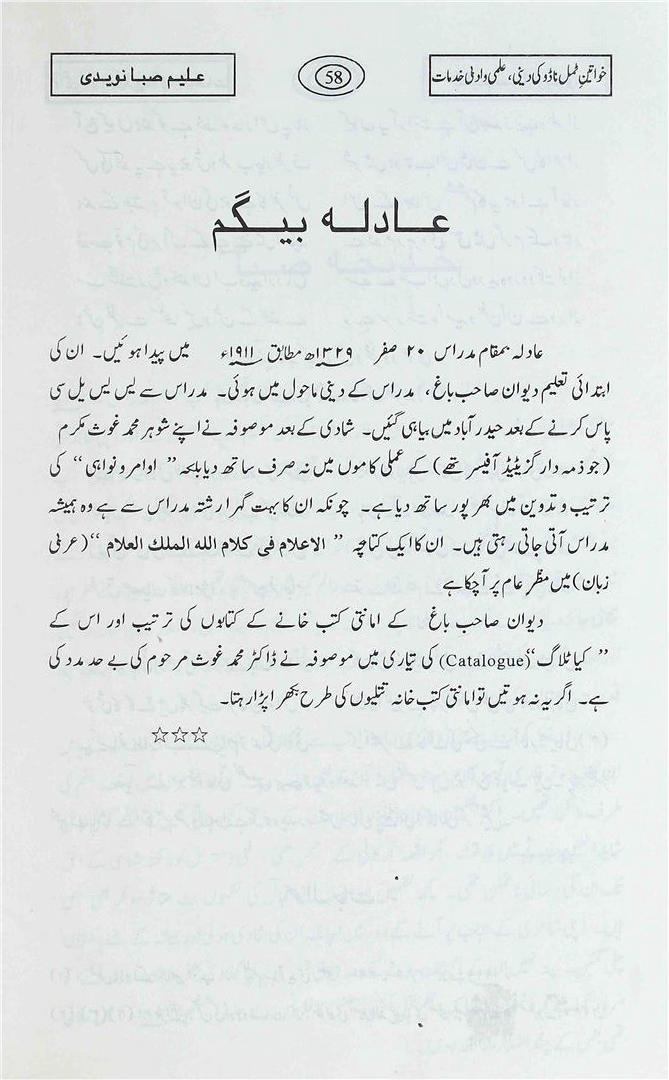 خواتینِ ٹمل ناڈو کی دینی، علمی و ادبی خدمات
58
علیم صبا نویدی
عادلہ بیگم
عادلہ بمقام مدراس ۲۰ صفر ۱۳۲۹ھ مطابق ۱۹۱۱ء میں پیدا ہوئیں۔ ان کی
ابتدائی تعلیم دیوان صاحب باغ، مدراس کے دینی ماحول میں ہوئی۔ مدراس سے یس یس یل سی
پاس کرنے کے بعد حیدرآباد میں بیاہی گئیں۔ شادی کے بعد موصوفہ نے اپنے شوہر محمد غوث مکرم
(جو ذمہ دار گزیٹیڈ آفیسر تھے) کے عملی کاموں میں نہ صرف ساتھ دیا بلکہ ’’ اوامر و نواہی ‘‘ کی
ترتیب و تدوین میں بھر پور ساتھ دیا ہے۔ چونکہ ان کا بہت گہرا رشتہ مدراس سے ہے وہ ہمیشہ
مدراس آتی جاتی رہتی ہیں۔ ان کا ایک کتابچہ ’’ الاعلام فی کلام الله الملك العلام ‘‘ (عربی
زبان) میں منظرِ عام پر آچکا ہے
دیوان صاحب باغ کے امانتی کتب خانے کے کتابوں کی ترتیب اور اس کے
’’ کیاٹلاگ ‘‘(Catalogue) کی تیاری میں موصوفہ نے ڈاکٹر محمد غوث مرحوم کی بے حد مدد کی
ہے۔ اگر یہ نہ ہوتیں تو امانتی کتب خانہ تتلیوں کی طرح بکھرا پڑا رہتا۔
☆☆☆